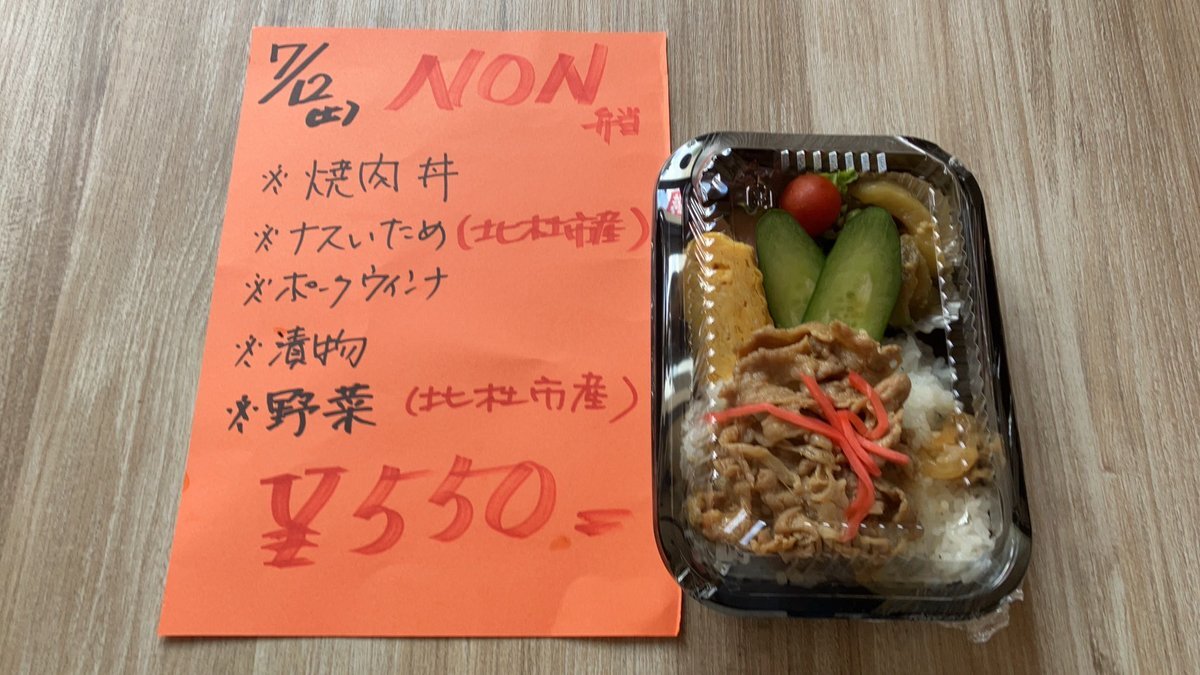 7/12(土) NON
弁当
※焼肉丼
※ナスいため(北杜市産)
※ポークウインナ
※漬物
※野菜(北杜市産)
¥550.=